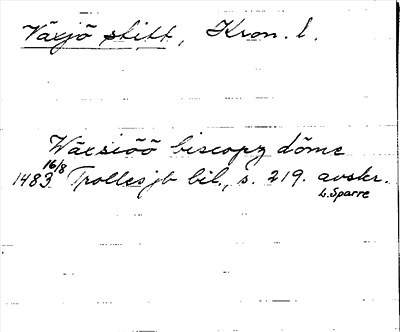 Växjö stift, Kron. l.
Wäxsiöö biscopz döme
1483 16/8 Trolles jb bil., s. 219. avskr.
L. Sparre